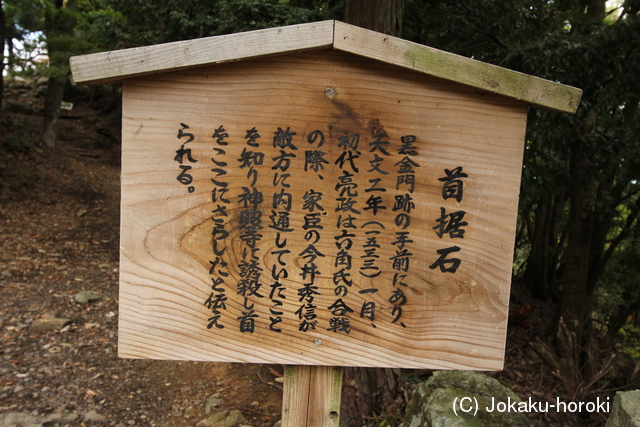 首据石
黒金門跡の手前にあり、
天文二年（一五三三）一月、
初代亮政は六角氏の合戦
の際、家臣の今井秀信が
敵方に内通していたこと
を知り神照寺に誘殺し首
をここにさらしたと伝え
られる。
(C) Jokaku-horoki